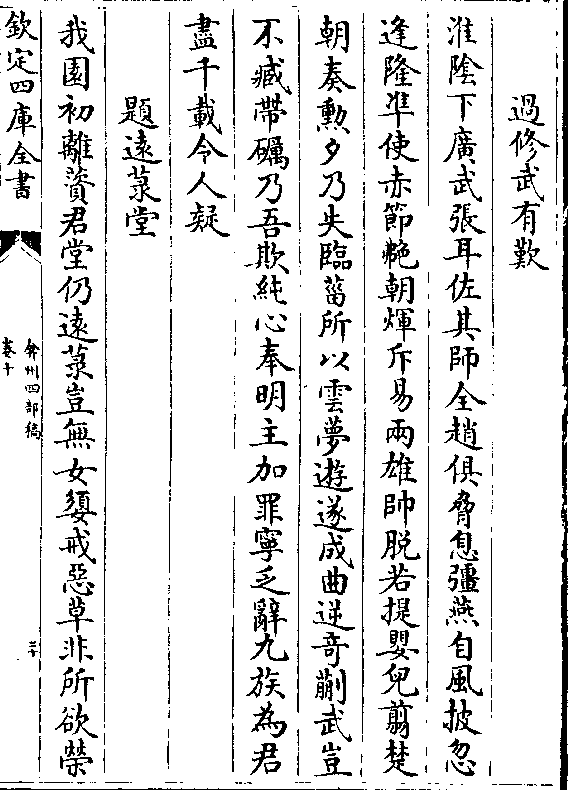 過修武有歎
淮陰下廣武張耳佐其師全趙俱脅息彊燕自風披忽
逢隆準使赤節艷朝煇斥易兩雄帥脱若提嬰兒翦楚
朝奏勲夕乃失臨菑所以雲夢遊遂成曲逆奇蒯武豈
不臧帶礪乃吾欺純心奉明主加罪寧乏辭九族為君
盡千載令人疑
題遠菉堂
我園初離薋君堂仍遠菉豈無女嬃戒惡草非所欲榮
欽定四庫全書
弇州四部稿
卷十